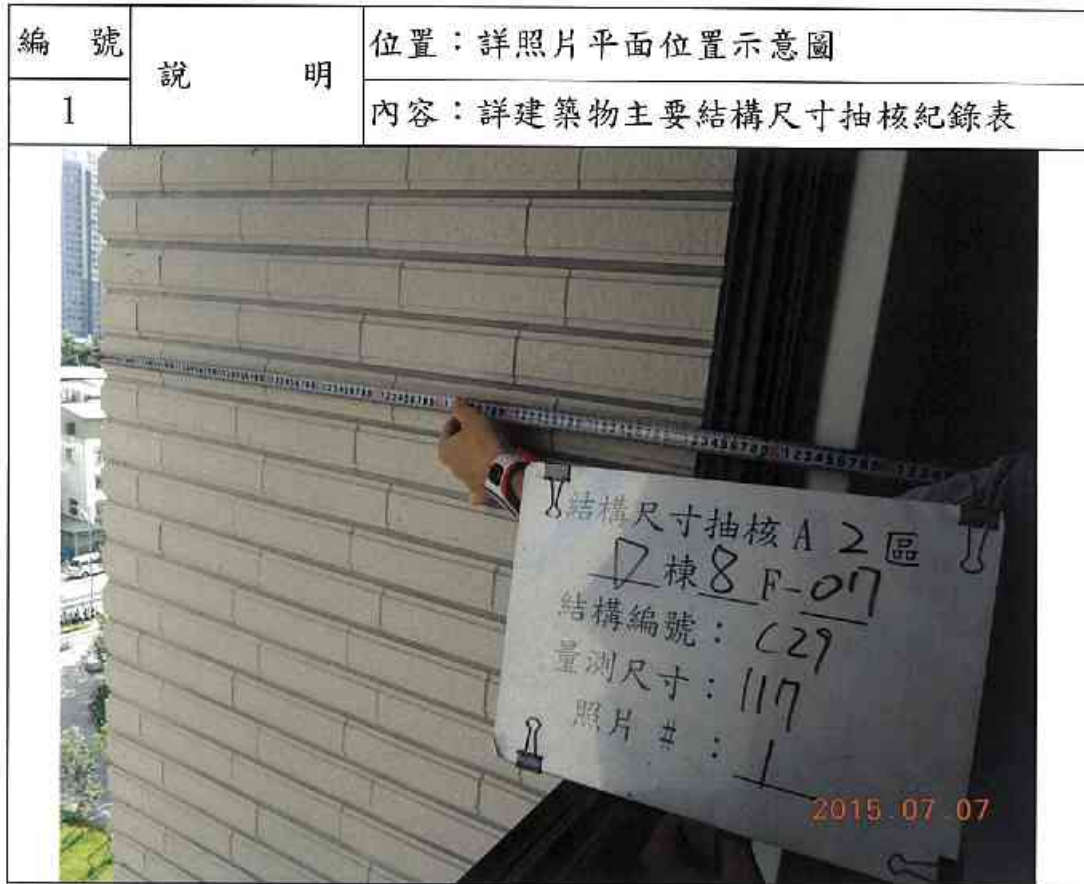 編 號
說 明
位置：詳照片平面位置示意圖
1
內容：詳建築物主要結構尺寸抽核紀錄表
結構尺寸抽核A 2區
D棟8F-07
結構編號：C29
量測尺寸：117
照片#：1
2015.07.07